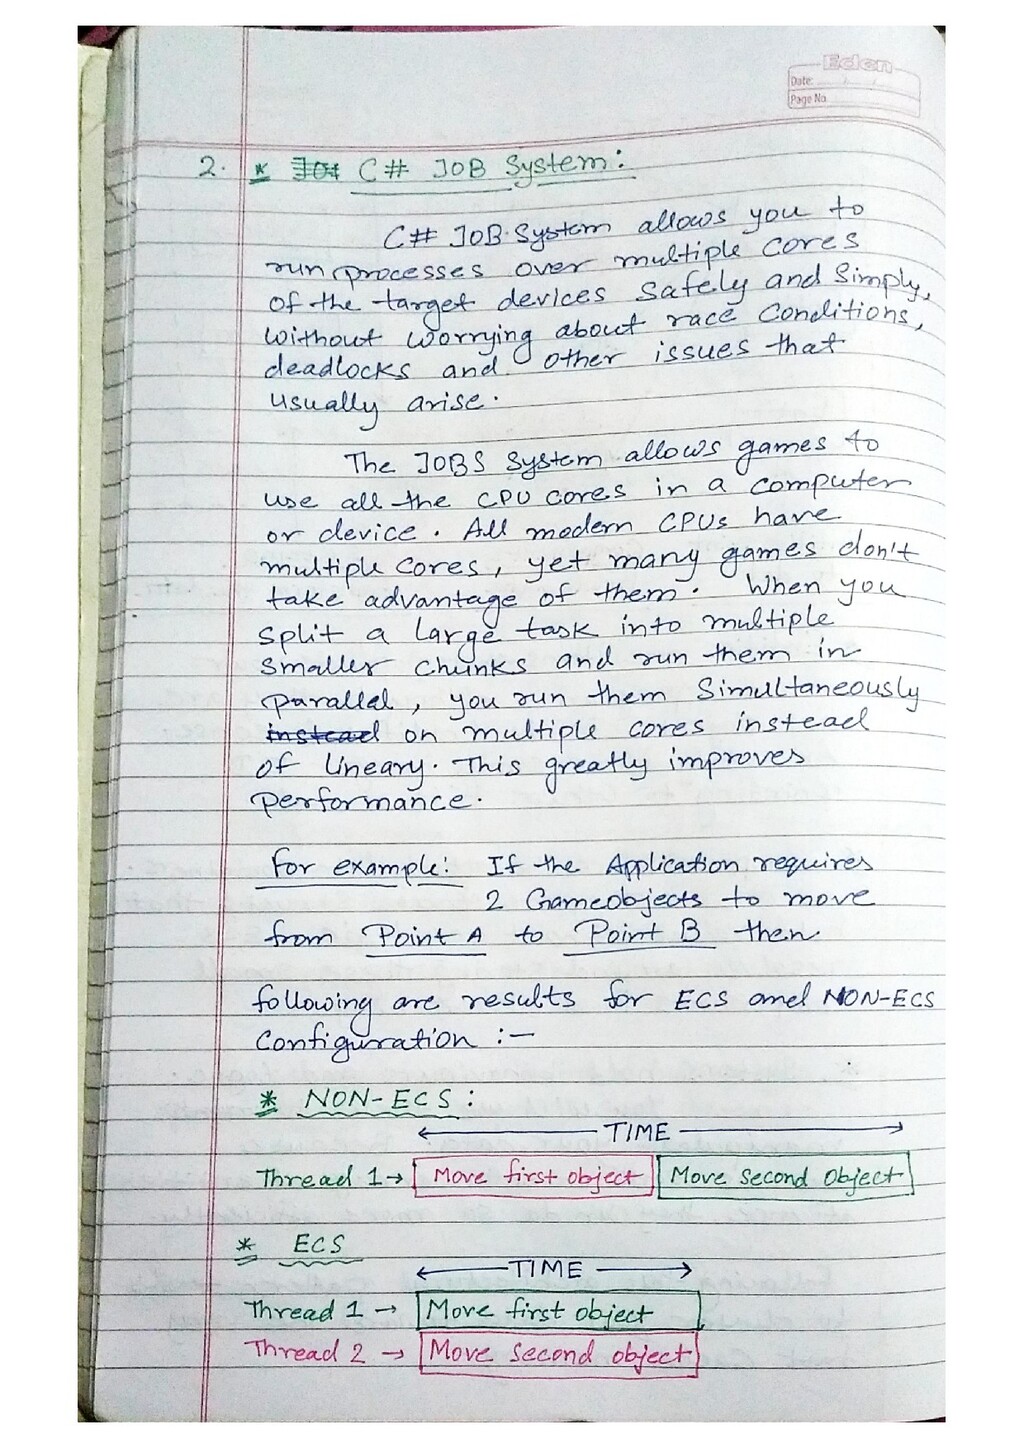 Eden
Date:
Page No.
2. * C# JOB System:
C# JOB System allows you to
run processes over multiple cores
of the target devices safely and simply,
without worrying about race conditions,
deadlocks and other issues that
usually arise.
The JOBS System allows games to
use all the CPU cores in a computer
or device. All modern CPUs have
multiple cores, yet many games don't
take advantage of them. When you
split a large task into multiple
smaller chunks and run them in
parallel, you run them simultaneously
instead on multiple cores instead
of lineary. This greatly improves
performance.
For example: If the Application requires
2 Gameobjects to move
from Point A to Point B then
following are results for ECS and NON-ECS
Configuration :-
* NON-ECS:
TIME
Thread 1→ Move first object Move second object
* ECS
TIME
Thread 1 → Move first object
Thread 2 → Move second object